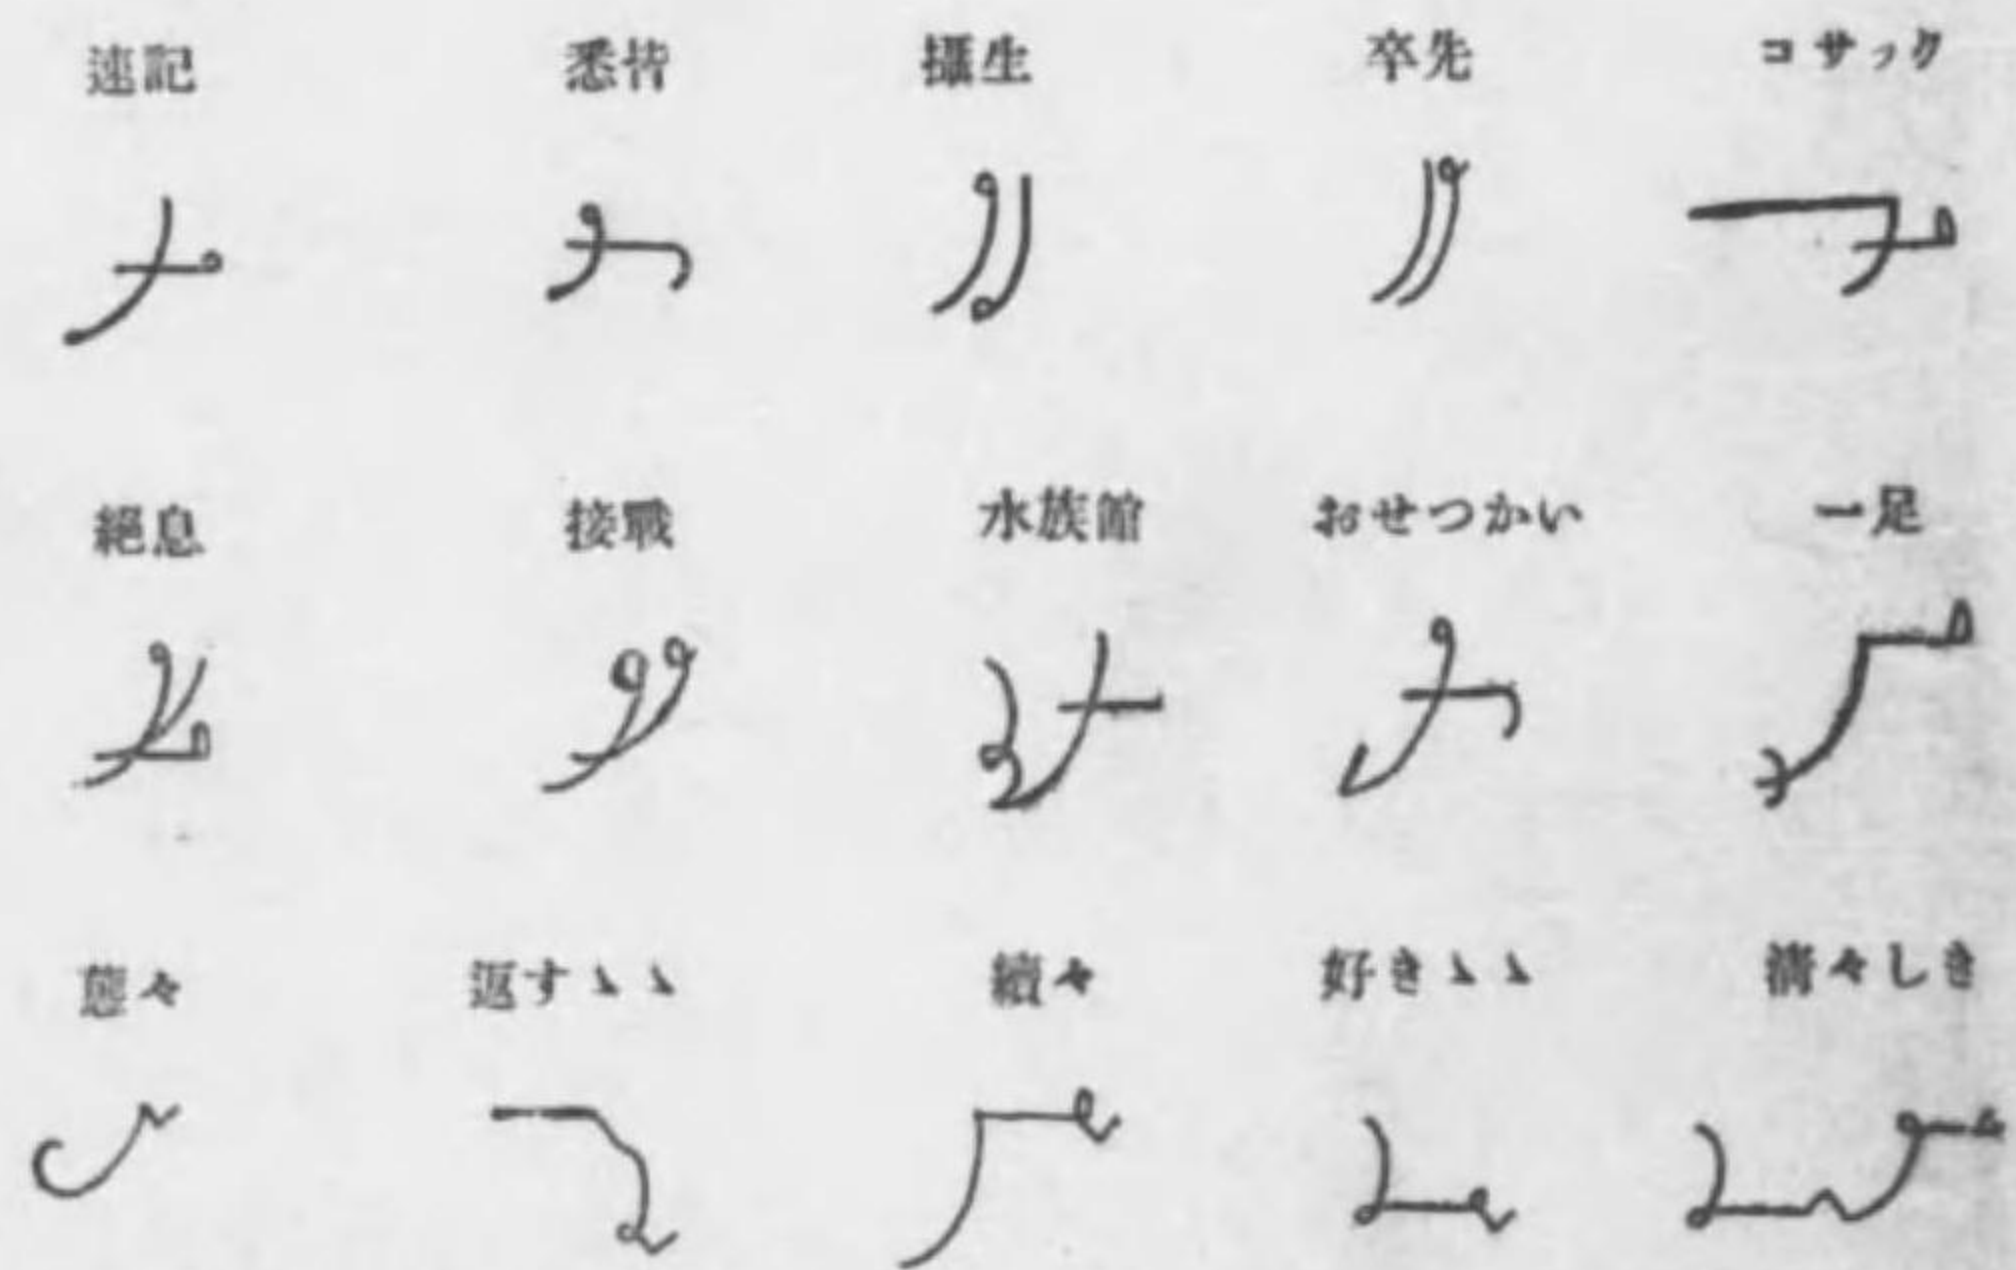 速記 悉皆 攝生 卒先 コサック
絕息 接戰 水族館 おせつかい 一足
態々 返すゝゝ 續々 好きゝゝ 淸々しき